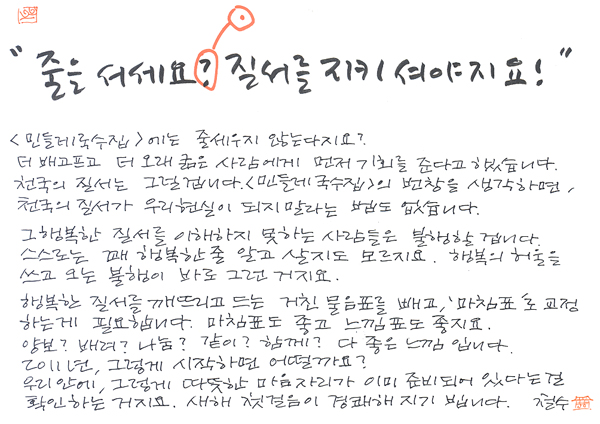 "줄을 서세요? 질서를 지키셔야지요!"
<민들레국수집>에는 줄세우지 않는다지요?
더 배고프고 더 오래 굶은 사람에게 먼저 기회를 준다고 했습니다.
천국의 질서는 그럴겁니다. <민들레국수집>의 번창을 생각하면,
천국의 질서가 우리현실이 되지말라는 법도 없습니다.
그행복한 질서를 이해하지 못하는 사람들은 불행할겁니다.
스스로는 꽤 행복한줄 알고 살지도 모르지요. 행복의 허울을
쓰고 크는 불행이 바로 그런 거지요.
행복한 질서를 깨뜨리고 드는 거친 물음표를 빼고, '마침표'로 교정
하는게 필요합니다. 마침표도 좋고 느낌표도 좋지요.
양보? 배려? 나눔? 같이? 함께? 다 좋은 느낌입니다.
2011년, 그렇게 시작하면 어떨까요?
우리안에, 그렇게 따뜻한 마음자리가 이미 준비되어 있다는걸
확인하는 거지요. 새해 첫걸음이 경쾌해지기 빕니다. 철수